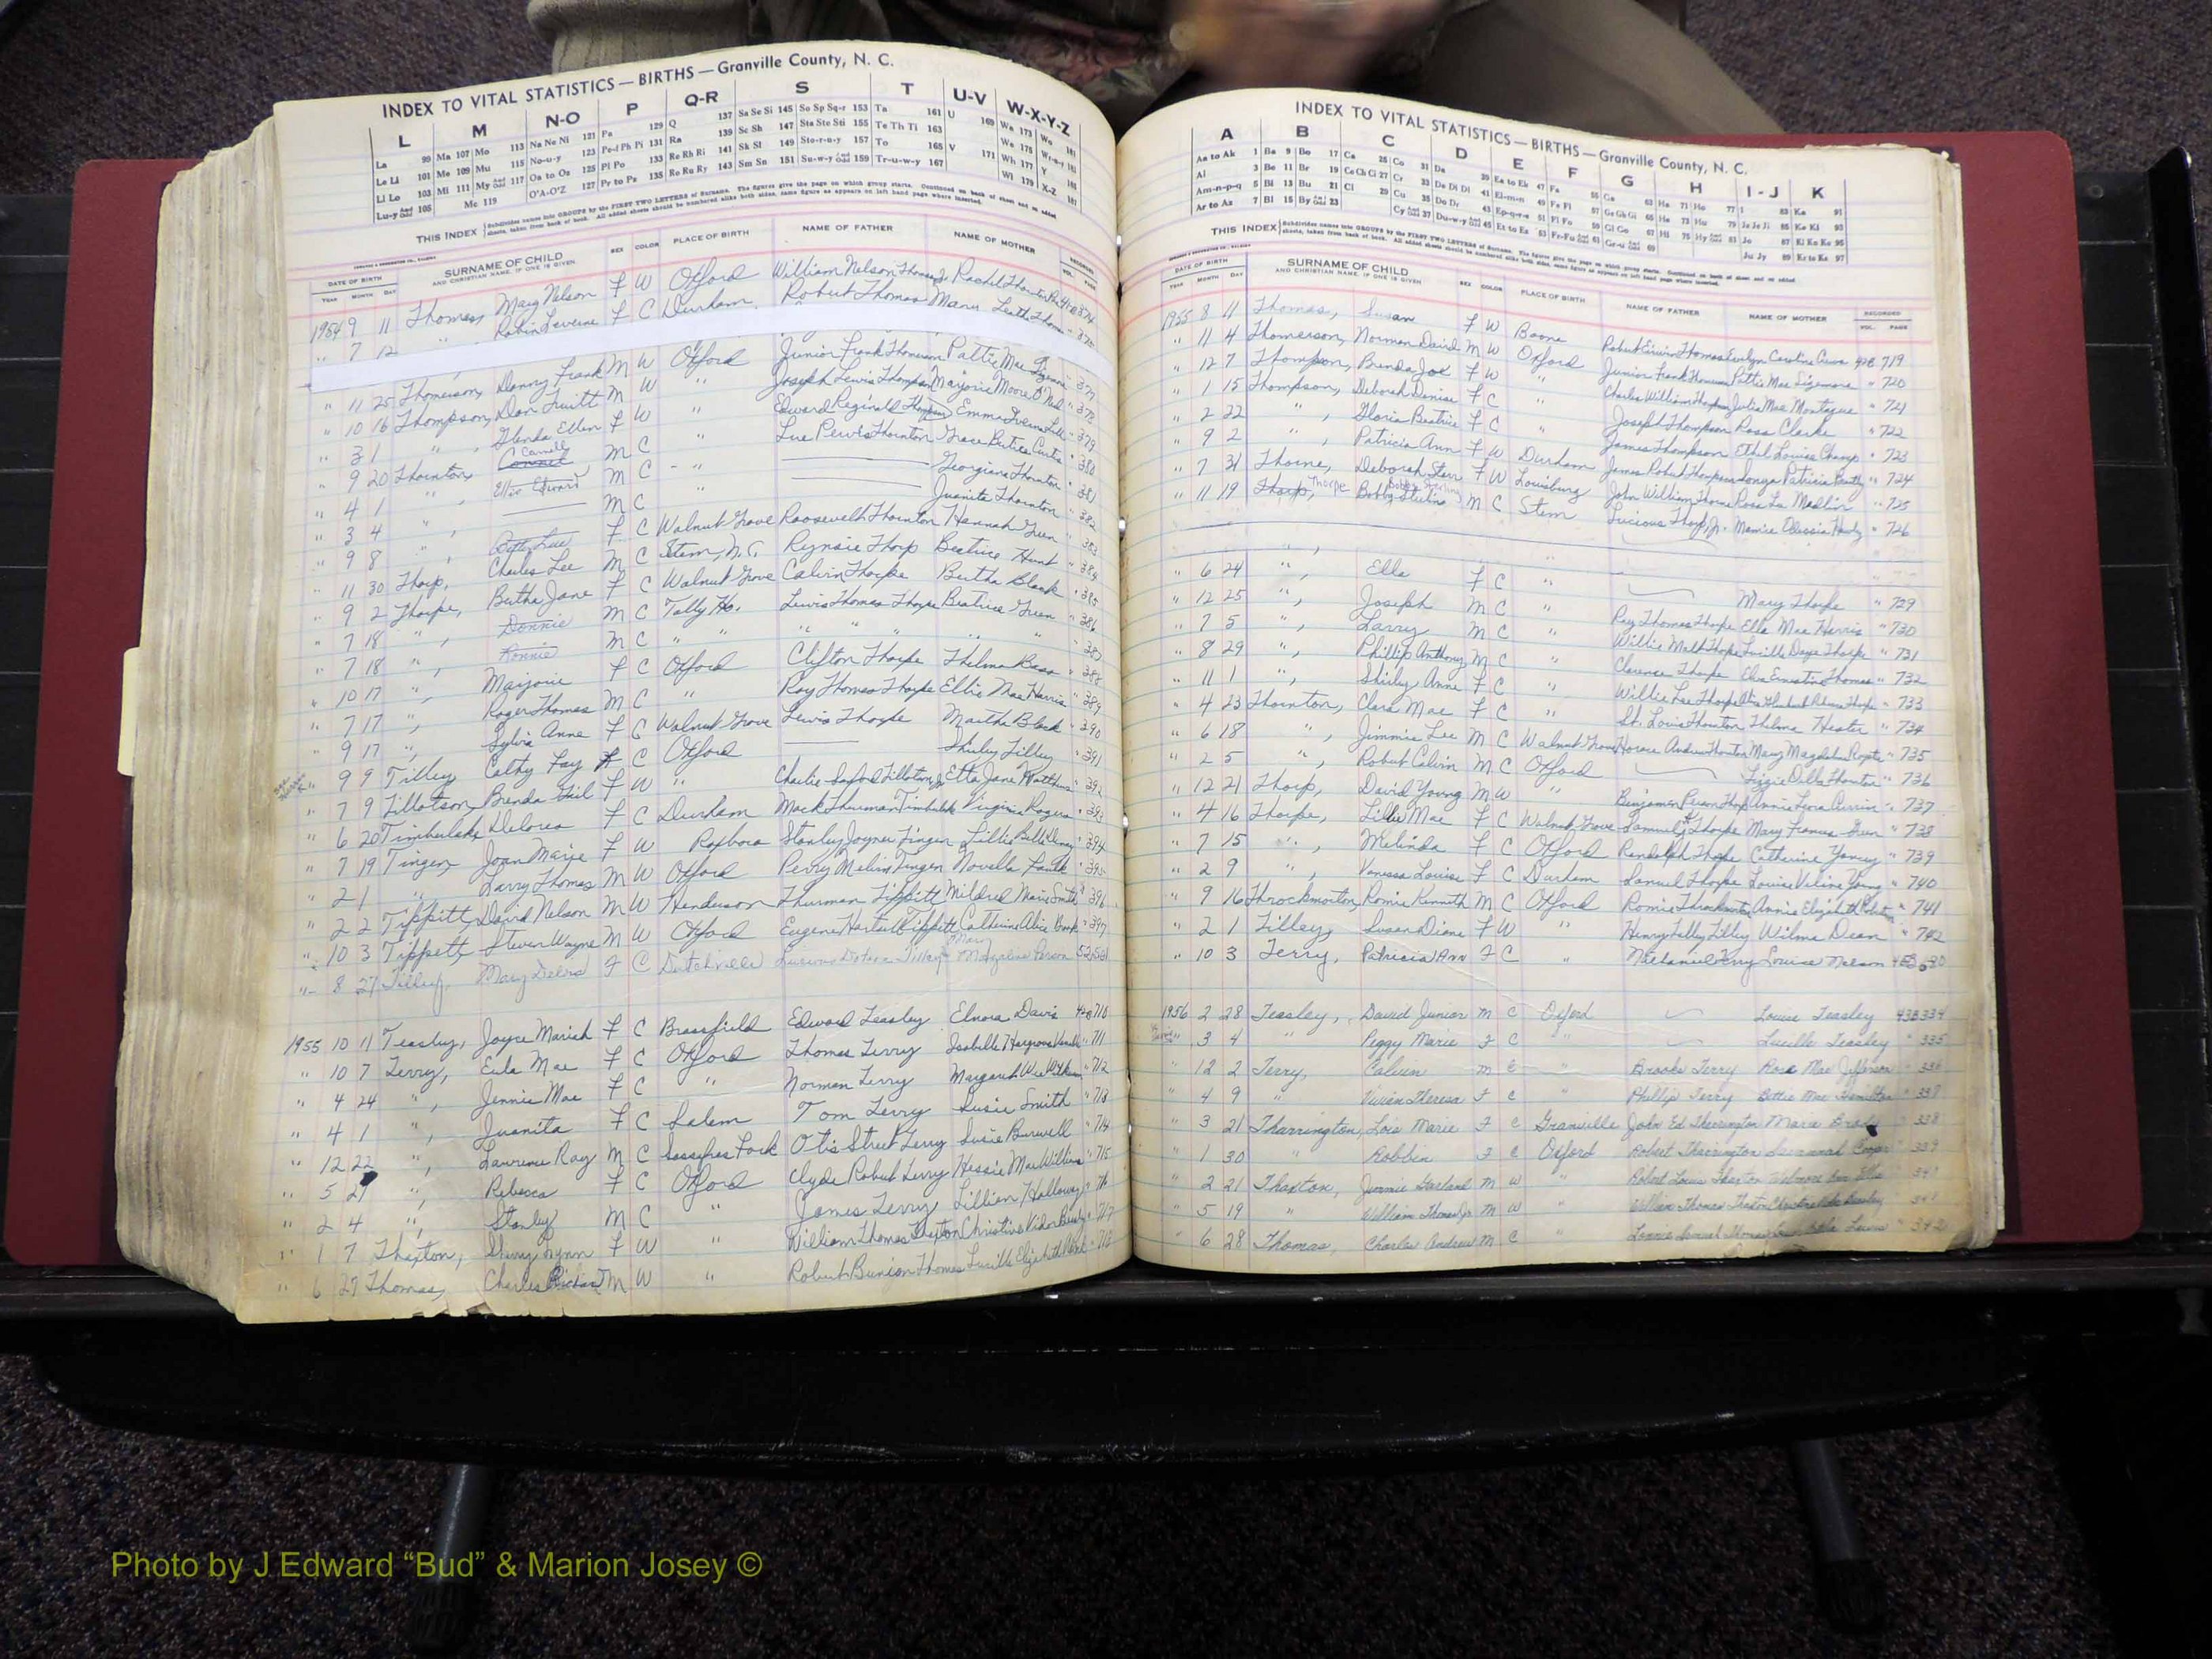 INDEX TO VITAL STATISTICS — BIRTHS — Granville County, N. C.
L M N-O P Q-R S T U-V W-X-Y-Z
La 99 Ma 107 Mo 113 Na Ne Ni 121 Pa 129 Q 137 Sa Se Si 145 So Sp Sq-r 153 Ta 161 U 169 Wa 173 Wo 181
Le Li 101 Me 109 Mu 115 No-u-y 123 Pe-f Ph Pi 131 Ra 139 Sc Sh 147 Sta Ste Sti 155 Te Th Ti 163 We 175
Li Lo 103 Mi 111 My And Odd 117 Oa to Os 125 Pl Po 133 Re Rh Ri 141 Sk Sl 149 Sto-r-u-y 157 To 165 V 171 Wh 177 Y
Lu-y And Odd 105 Mc 119 O'A-O'Z 127 Pr to Ps 135 Ro Ru Ry 143 Sm Sn 151 Su-w-y And Odd 159 Tr-u-w-y 167 Wi 179 X-Z 187
THIS INDEX Subdivides names into GROUPS by the FIRST TWO LETTERS of Surname. The figures give the page on which group starts. Continued on back of sheets and on added
sheets, taken from back of book. All added sheets should be numbered alike both sides, same figure as appears on left hand page where inserted.
DATE OF BIRTH SURNAME OF CHILD SEX COLOR PLACE OF BIRTH NAME OF FATHER NAME OF MOTHER RECORDED
YEAR MONTH DAY AND CHRISTIAN NAME, IF ONE IS GIVEN VOL. PAGE
1954 9 11 Thomas, Mary Nelson F W Oxford William Nelson Thomas Jr Rachel Thornton
" 7 12 " Robin Levene F C Durham Robert Thomas Mary Leath Thomas
" 11 25 Thomerson, Danny Frank M W Oxford Junior Frank Thomerson Pattie Mae
" 10 16 Thompson, Don Truitt M W " Joseph Lewis Thompson Marjorie Moore O'Neal " 378
" 3 1 " , Glenda Ellen F W " Edward Reginald Thompson Emma " 379
" 9 20 Thornton, M C " Lue Thornton Grace Curtis " 380
" 4 1 " , Ellis Edward M C " Georgiana Thornton " 381
" 3 4 " , M C " Juanita Thornton " 382
" 9 8 " , Betty Lue F C Walnut Grove Roosevelt Thornton Hannah Green " 383
" 11 30 Thorp, Charles Lee M C Stem, N.C. Thorp Beatrice Hunt " 384
" 9 2 Thorpe, Bertha Jane F C Walnut Grove Calvin Thorpe Bertha Black " 385
" 7 18 " , Donnie M C Tally Ho. Lewis Thomas Thorpe Beatrice Green " 386
" 7 18 " , Ronnie M C " " " " " " " 387
" 10 17 " , Marjorie F C Oxford Clifton Thorpe Thelma Bass " 388
" 7 17 " , Roger Thomas M C " Roy Thomas Thorpe Ellis Mae Harris " 389
" 9 17 " , Sylvia Anne F C Walnut Grove Lewis Thorpe Martha Black " 390
" 9 9 Tilley, Cathy Fay F C Oxford Shirley Tilley " 391
" 7 9 Tillotson, Brenda Gail F W " Charlie Tillotson Jr Etta Jane Watkins " 392
" 6 20 Timberlake, Delores F C Durham Mack Thurman Timberlake Virginia Rogers " 393
" 7 19 Tingen, Joan Marie F W Roxboro Stanley Joyner Tingen Lillie Belle " 394
" 2 1 " Larry Thomas M W Oxford Perry Melvin Tingen Novella Faulk " 395
" 2 2 Tippitt, David Nelson M W Henderson Thurman Tippitt Mildred Marie Smith " 396
" 10 3 Tippett, Steven Wayne M W Oxford Eugene Tippitt Catherine Alice " 397
" 8 27 Tilley, Mary F C Dutchville Tilley
1955 10 11 Teasley, Joyce Mariah F C Brassfield Edward Teasley Elnora Davis 42B 710
" 10 7 Terry, Eula Mae F C Oxford Thomas Terry Isabelle Hargrove " 711
" 4 24 " , Jennie Mae F C " Norman Terry Margaret " 712
" 4 1 " , Juanita F C Salem Tom Terry Susie Smith " 713
" 12 22 " , Lawrence Ray M C Sassafras Fork Otis Street Terry Susie Burwell " 714
" 5 " , Rebecca F C Oxford Clyde Robert Terry Hessie Mae Williams " 715
" 2 4 " , Stanley M C " James Terry Lillian Holloway " 716
" 1 7 Thaxton, Sherry Lynn F W " William Thomas Thaxton Christine Beasley " 717
" 6 29 Thomas, Charles Richard M W " Robert Bunion Thomas Lucille Elizabeth " 718
INDEX TO VITAL STATISTICS — BIRTHS — Granville County, N. C.
A B C D E F G H I-J K
Aa to Ak 1 Ba 9 Bo 17 Ca 25 Co 31 Da 39 Ea to Ek 47 Fa 55 Ga 63 Ha 71 Ho 77 I 83 Ka 91
Al 3 Be 11 Br 19 Ce Ch Ci 27 Cr 33 De Di Dl 41 El-m-n 49 Fe Fi 57 Ge Gh Gi 65 He 73 Hu 79 Ja Je Ji 85 Ke Kl 93
Am-n-p-q 5 Bi 13 Bu 21 Cl 29 Cu 35 Do Dr 43 Ep-q-r-s 51 Fl Fo 59 Gl Go 67 Hi 75 Hy And Odd 81 Jo 87 Ki Kn Ko 95
Ar to Az 7 Bl 15 By And Odd 23 Cy And Odd 37 Du-w-y And Odd 45 Et to Ez 53 Fr-Fu And Odd 61 Gr-u And Odd 69 Ju Jy 89 Kr to Kz 97
THIS INDEX Subdivides names into GROUPS by the FIRST TWO LETTERS of Surname. The figures give the page on which group starts. Continued on back of sheets and on added
sheets, taken from back of book. All added sheets should be numbered alike both sides, same figure as appears on left hand page where inserted.
DATE OF BIRTH SURNAME OF CHILD SEX COLOR PLACE OF BIRTH NAME OF FATHER NAME OF MOTHER RECORDED
YEAR MONTH DAY AND CHRISTIAN NAME, IF ONE IS GIVEN VOL. PAGE
1955 8 11 Thomas, Susan F W Boone Robert Erwin Thomas Evelyn Caroline 42B 719
" 11 4 Thomerson, Norman David M W Oxford Junior Frank Thomerson Pattie Mae Sizemore " 720
" 12 7 Thompson, Brenda Joe F W " Charles William Thompson Julia Mae Montague " 721
" 1 15 Thompson, Deborah Denise F C " Joseph Thompson Rosa Clarke " 722
" 2 22 " , Gloria Beatrice F C " James Thompson Ethel Louise Champ " 723
" 9 2 " , Patricia Ann F W Durham James Robert Thompson Patricia " 724
" 7 31 Thorne, Deborah Starr F W Louisburg John William Thorne Rosa Lee " 725
" 11 19 Thorp, Thorpe Bobby Sterling M C Stem Lucious Thorp, Jr. Mamie " 726
" 6 24 " , Ella F C " Mary Thorpe " 729
" 12 25 " , Joseph M C " Roy Thomas Thorpe Ella Mae Harris " 730
" 7 5 " , Larry M C " Willie Thorpe Lucille Daye Thorpe " 731
" 8 29 " , Phillip Anthony M C " Clarence Thorpe Thomas " 732
" 11 1 " , Shirley Anne F C " Willie Lee Thorpe " 733
" 4 23 Thornton, Clara Mae F C " St. Louis Thornton Thelma Hester " 734
" 6 18 " , Jimmie Lee M C Walnut Grove Horace Andrew Thornton Mary Magdalene " 735
" 2 5 " , Robert Calvin M C Oxford Lizzie Thornton " 736
" 12 21 Thorp, David Young M W " Benjamin Person Thorp Annie Currin " 737
" 4 16 Thorpe, Lillie Mae F C Walnut Grove Samuel Thorpe Mary Frances Green " 738
" 7 15 " , Melinda F C Oxford Randolph Thorpe Catherine Yancey " 739
" 2 9 " , Vanessa Louise F C Durham Samuel Thorpe Louise Young " 740
" 9 16 Throckmorton, Romie Kenneth M C Oxford Romie Throckmorton Annie Elizabeth " 741
" 2 1 Tilley, Susan Diane F W " Henry Tilley Wilma Dean " 742
" 10 3 Terry, Patricia Ann F C " Nathaniel Terry Louise Nelson
1956 2 28 Teasley, David Junior M C Oxford Louise Teasley 43B 334
" 3 4 " Peggy Marie F C " Lucille Teasley " 335
" 12 2 Terry, Calvin M C " Brooks Terry Rose Mae Jefferson " 336
" 4 9 " Vivian Theresa F C " Phillip Terry Bettie Mae Hamilton " 337
" 3 21 Tharrington, Lois Marie F C Granville John Ed Tharrington Marie " 338
" 1 30 " Robbin F C Oxford Robert Tharrington Savannah Cooper " 339
" 2 21 Thaxton, Jimmie Garland M W " Robert Louis Thaxton Ellis " 340
" 5 19 " William Thomas Jr. M W " William Thomas Thaxton Christine Beasley " 341
" 6 28 Thomas, Charles Andrew M C " Lonnie Samuel Thomas " 342
Photo by J Edward “Bud” & Marion Josey ©